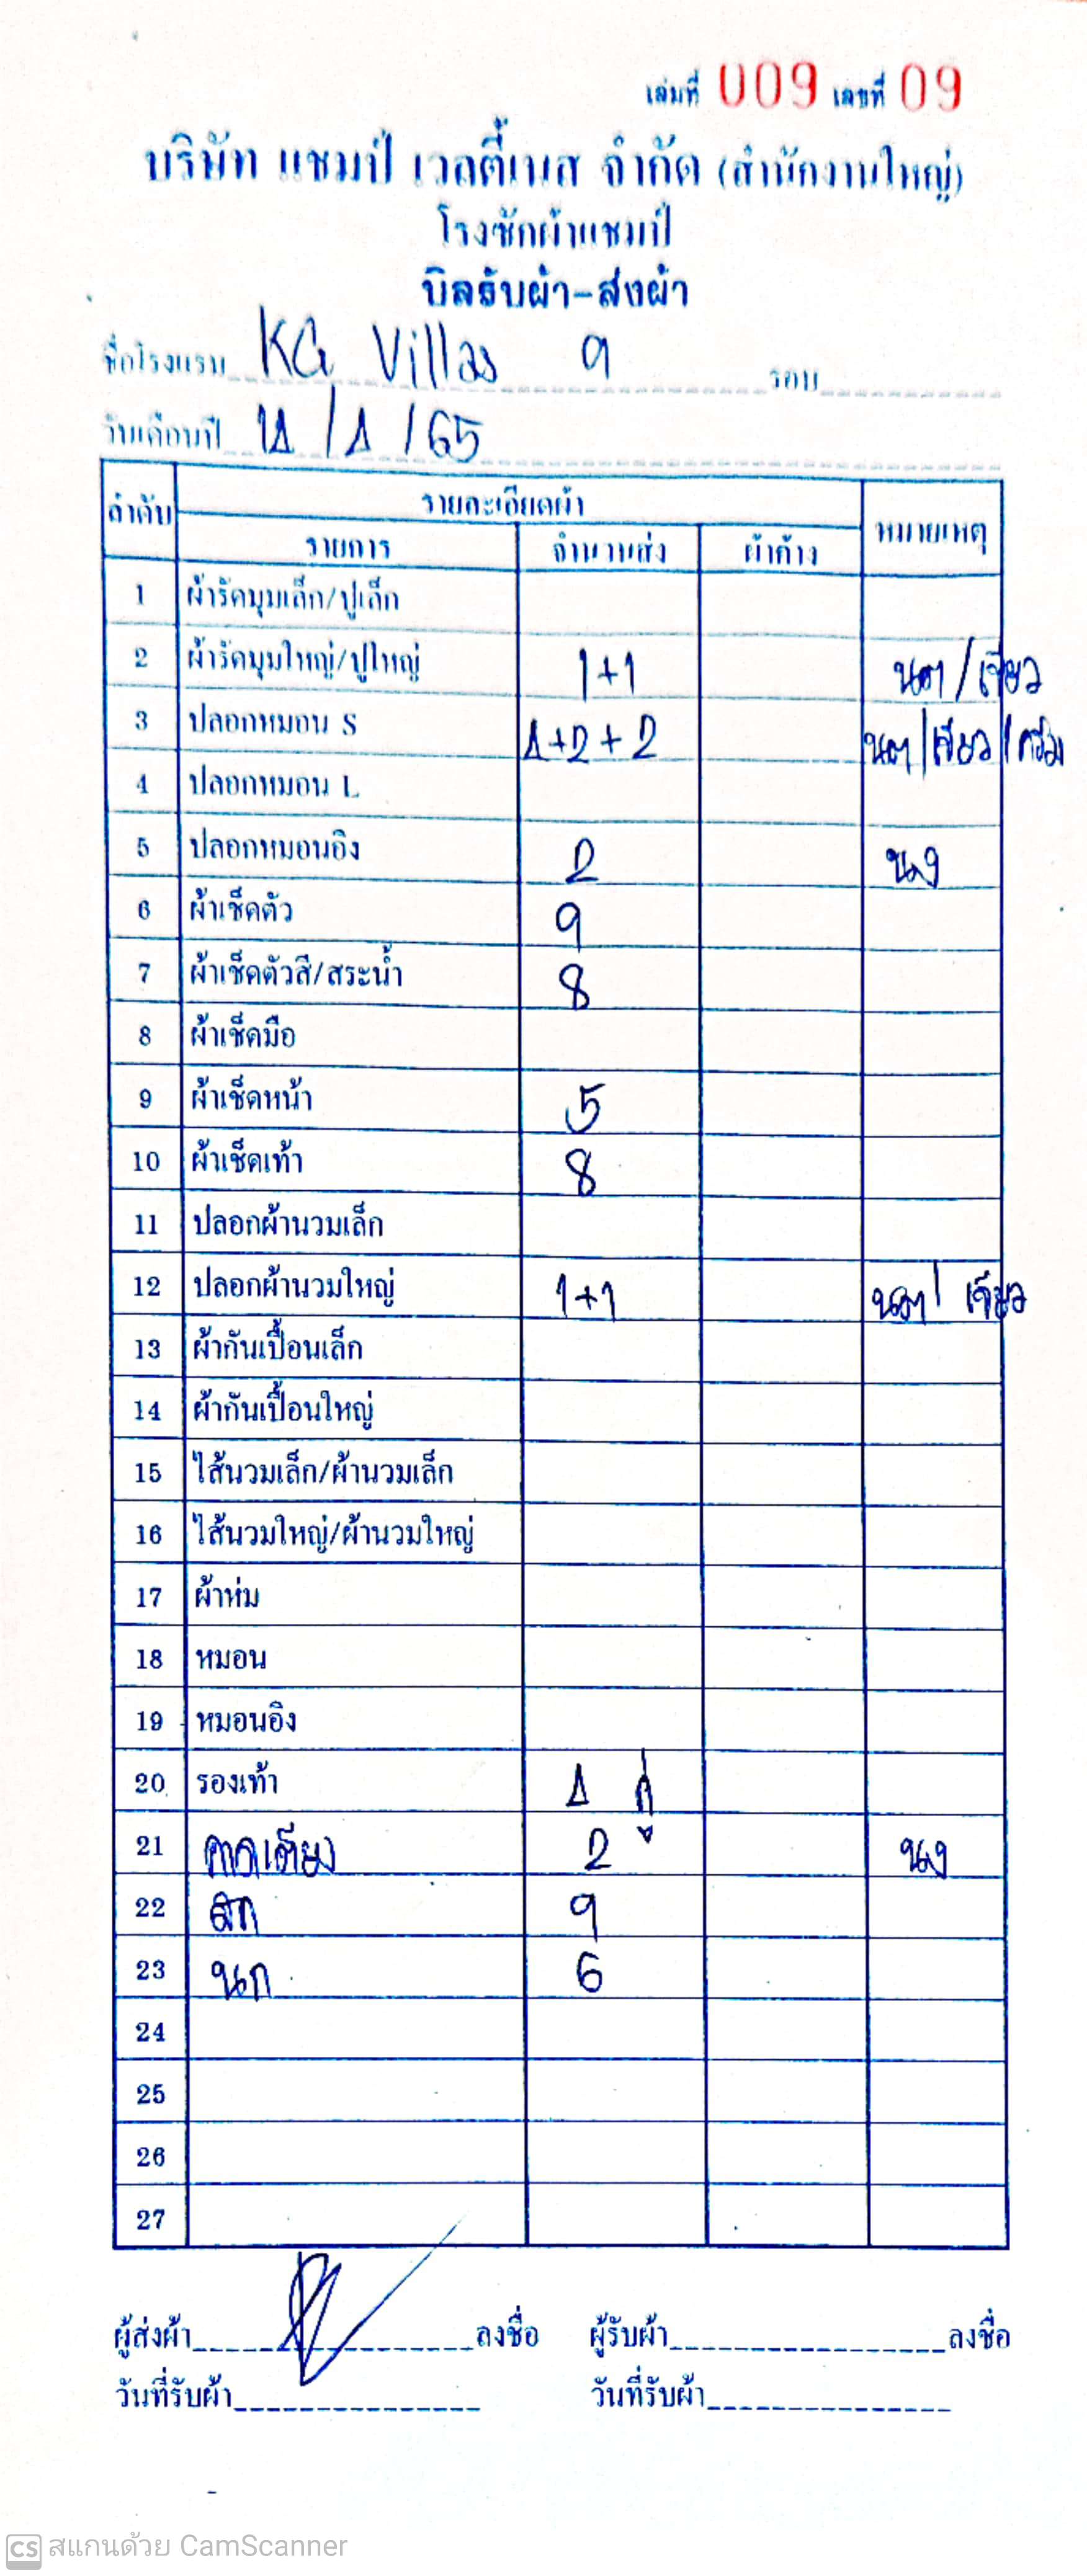 เล่มที่ 009 เลขที่ 09
บริษัท แชมป์ เวลตี้เนส จำกัด (สำนักงานใหญ่)
โรงซักผ้าแชมป์
บิลรับผ้า-ส่งผ้า
ชื่อโรงแรม KG Villas 9 รอบ
วันเดือนปี /4/65
ลำดับ รายละเอียดผ้า หมายเหตุ
รายการ จำนวนส่ง ผ้าค้าง
1 ผ้ารัดมุมเล็ก/ปูเล็ก
2 ผ้ารัดมุมใหญ่/ปูใหญ่ 1+1
3 ปลอกหมอน S 4+2+2
4 ปลอกหมอน L
5 ปลอกหมอนอิง 2
6 ผ้าเช็ดตัว 9
7 ผ้าเช็ดตัวสี/สระน้ำ 8
8 ผ้าเช็ดมือ
9 ผ้าเช็ดหน้า 5
10 ผ้าเช็ดเท้า 8
11 ปลอกผ้านวมเล็ก
12 ปลอกผ้านวมใหญ่ 1+1
13 ผ้ากันเปื้อนเล็ก
14 ผ้ากันเปื้อนใหญ่
15 ไส้นวมเล็ก/ผ้านวมเล็ก
16 ไส้นวมใหญ่/ผ้านวมใหญ่
17 ผ้าห่ม
18 หมอน
19 หมอนอิง
20 รองเท้า 4 คู่
21 คาดเตียง 2
22 9
23 6
24
25
26
27
ผู้ส่งผ้า ลงชื่อ ผู้รับผ้า ลงชื่อ
วันที่รับผ้า วันที่รับผ้า
CS สแกนด้วย CamScanner